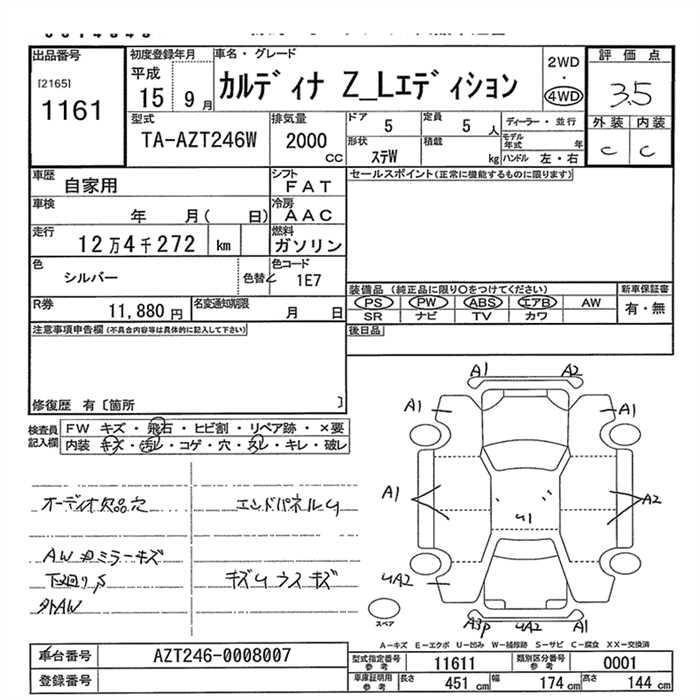 出品番号
[2165]
1161
初度登録年月
平成
15 9月
車名・グレード
カルディナ Z_Lエディション
2WD
・
4WD
評価点
3.5
外装 内装
C C
型式
TA-AZT246W
排気量
2000
CC
ドア 5
定員 5 人
ディーラー・並行
形状 ステW
積載 kg
モデル年式 年
ハンドル 左・右
車歴 自家用
シフト FAT
セールスポイント(正常に機能するものに限ります)
車検 年 月( 日)
冷房 AAC
走行 12万4千272 km
燃料 ガソリン
色 シルバー
色替
色コード 1E7
装備品 (純正品に限り○をつけてください)
新車保証書
PS PW ABS エアB AW
有・無
SR ナビ TV カワ
R券 11,880円
名変通知期限 月 日
後日品
注意事項申告欄(不具合内容等は具体的に記入して下さい)
修復歴 有〔箇所 〕
検査員記入欄
FW キズ・飛石・ヒビ割・リペア跡・×要
内装 キズ・汚レ・コゲ・穴・スレ・キレ・破レ
オーディオ欠品穴
エンドパネルU
AW
ミラーキズ
下廻りS
キズUウスキズ
外AW
A1 A2
A1 A1
A1 A2
U1
UA2 A2
A3P UA2 A1
スペア
A-キズ E-エクボ U-凹み W-補修跡 S-サビ C-腐食 XX-交換済
車台番号 AZT246-0008007
型式指定番号参考 11611
類別区分番号参考 0001
登録番号
車庫証明記入参考
長さ 451 cm
幅 174 cm
高さ 144 cm